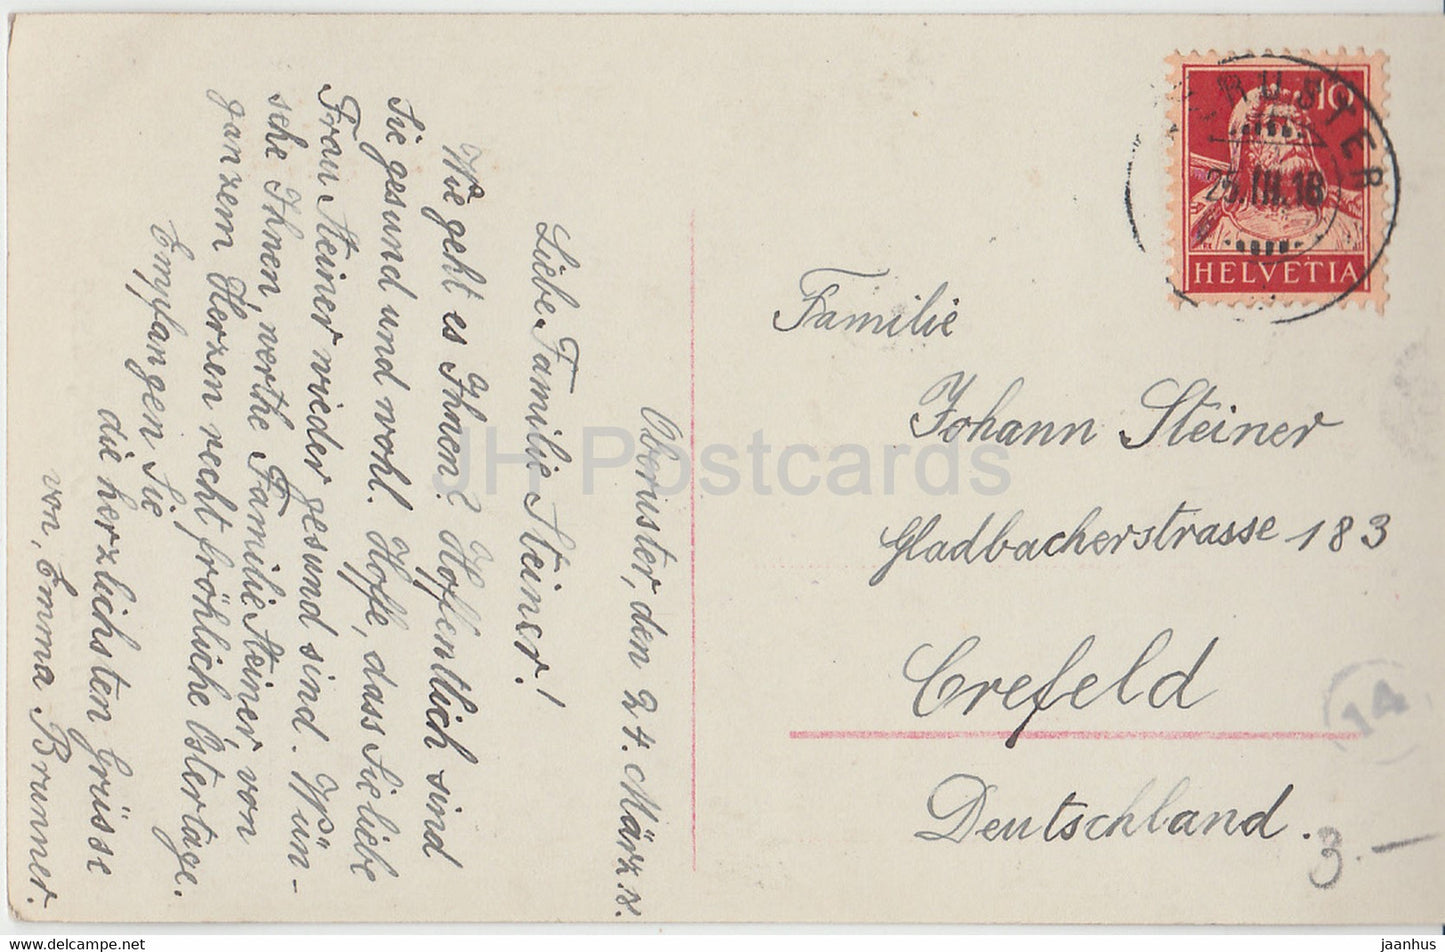 Oberuster, den 24. März
Liebe Familie Steiner!
Wie geht es Ihnen? Hoffentlich sind
Sie gesund und wohl. Hoffe, dass Sie liebe
Frau Steiner wieder gesund sind. Wün-
sche Ihnen, werthe Familie Steiner, von
ganzem Herzen recht fröhliche Ostertage.
Empfangen Sie
die herzlichsten Grüsse
von, Emma Brunner.
10
HELVETIA
ERUSTER
25.III.18
Familie
Johann Steiner
Gladbacherstrasse 183
Crefeld
Deutschland.
14
3.—
JH Postcards
hippostcard.com
jaanhus